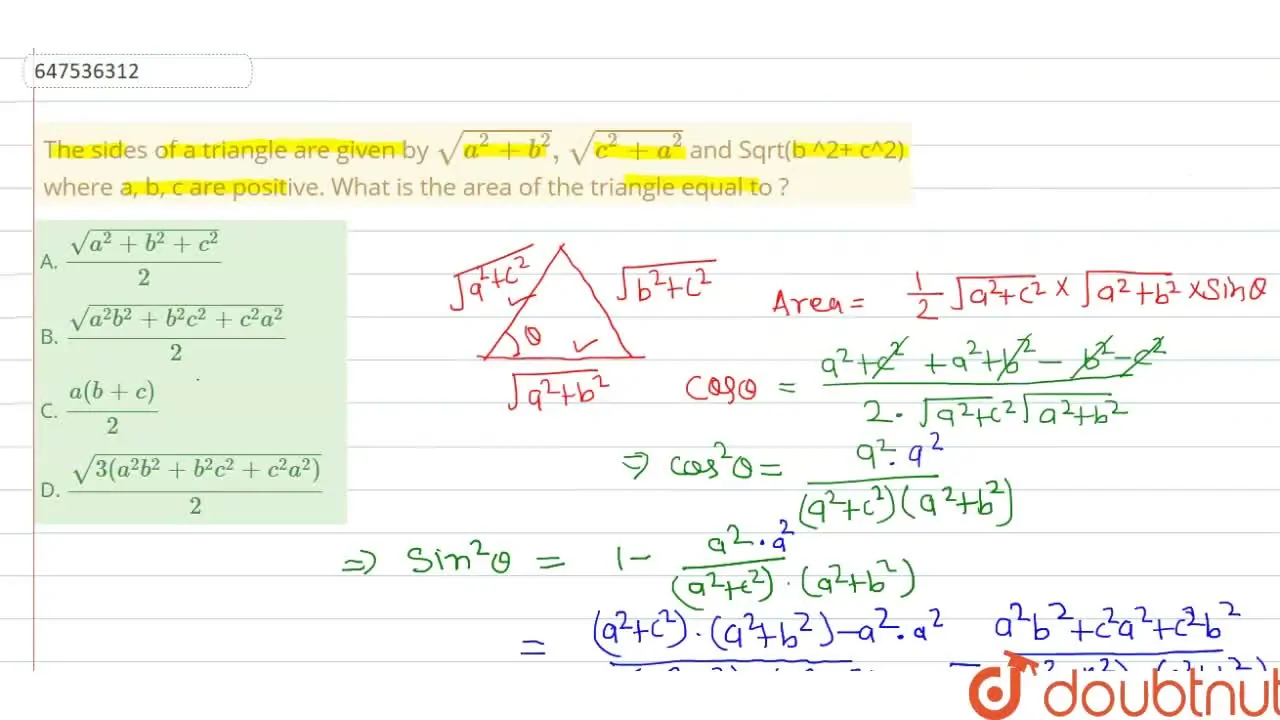 647536312
The sides of a triangle are given by √(a² + b²), √(c² + a²) and Sqrt(b ^2+ c^2)
where a, b, c are positive. What is the area of the triangle equal to ?
A. √(a² + b² + c²) / 2
B. √(a²b² + b²c² + c²a²) / 2
C. a(b + c) / 2
D. √(3(a²b² + b²c² + c²a²)) / 2
√(a²+c²)
√(b²+c²)
θ
√(a²+b²)
Area = 1/2 √(a²+c²) × √(a²+b²) × sinθ
cosθ = (a²+c² + a²+b² - b²-c²) / (2·√(a²+c²) √(a²+b²))
⇒ cos²θ = a²·a² / ((a²+c²)(a²+b²))
⇒ Sin²θ = 1 - a²·a² / ((a²+c²)·(a²+b²))
= (a²+c²)·(a²+b²) - a²·a²
= a²b²+c²a²+c²b²
doubtnut